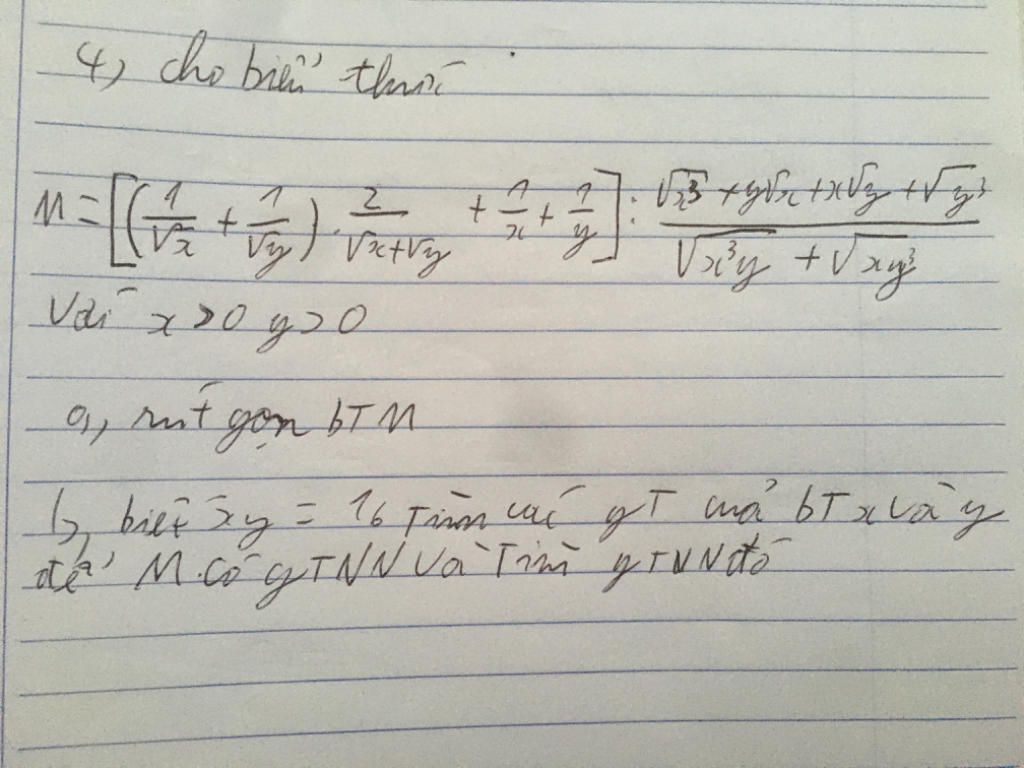 4, cho biểu thức
M = [(1/√x + 1/√y) · 2/(√x+√y) + 1/x + 1/y] : (√x³ + y√x + x√y + √y³)/(√x³y + √xy³)
Với x > 0 y > 0
a, rút gọn bT M
b, biết xy = 16 Tìm các gT của bT x và y
để M có gTNN và Tìm gTNN đó